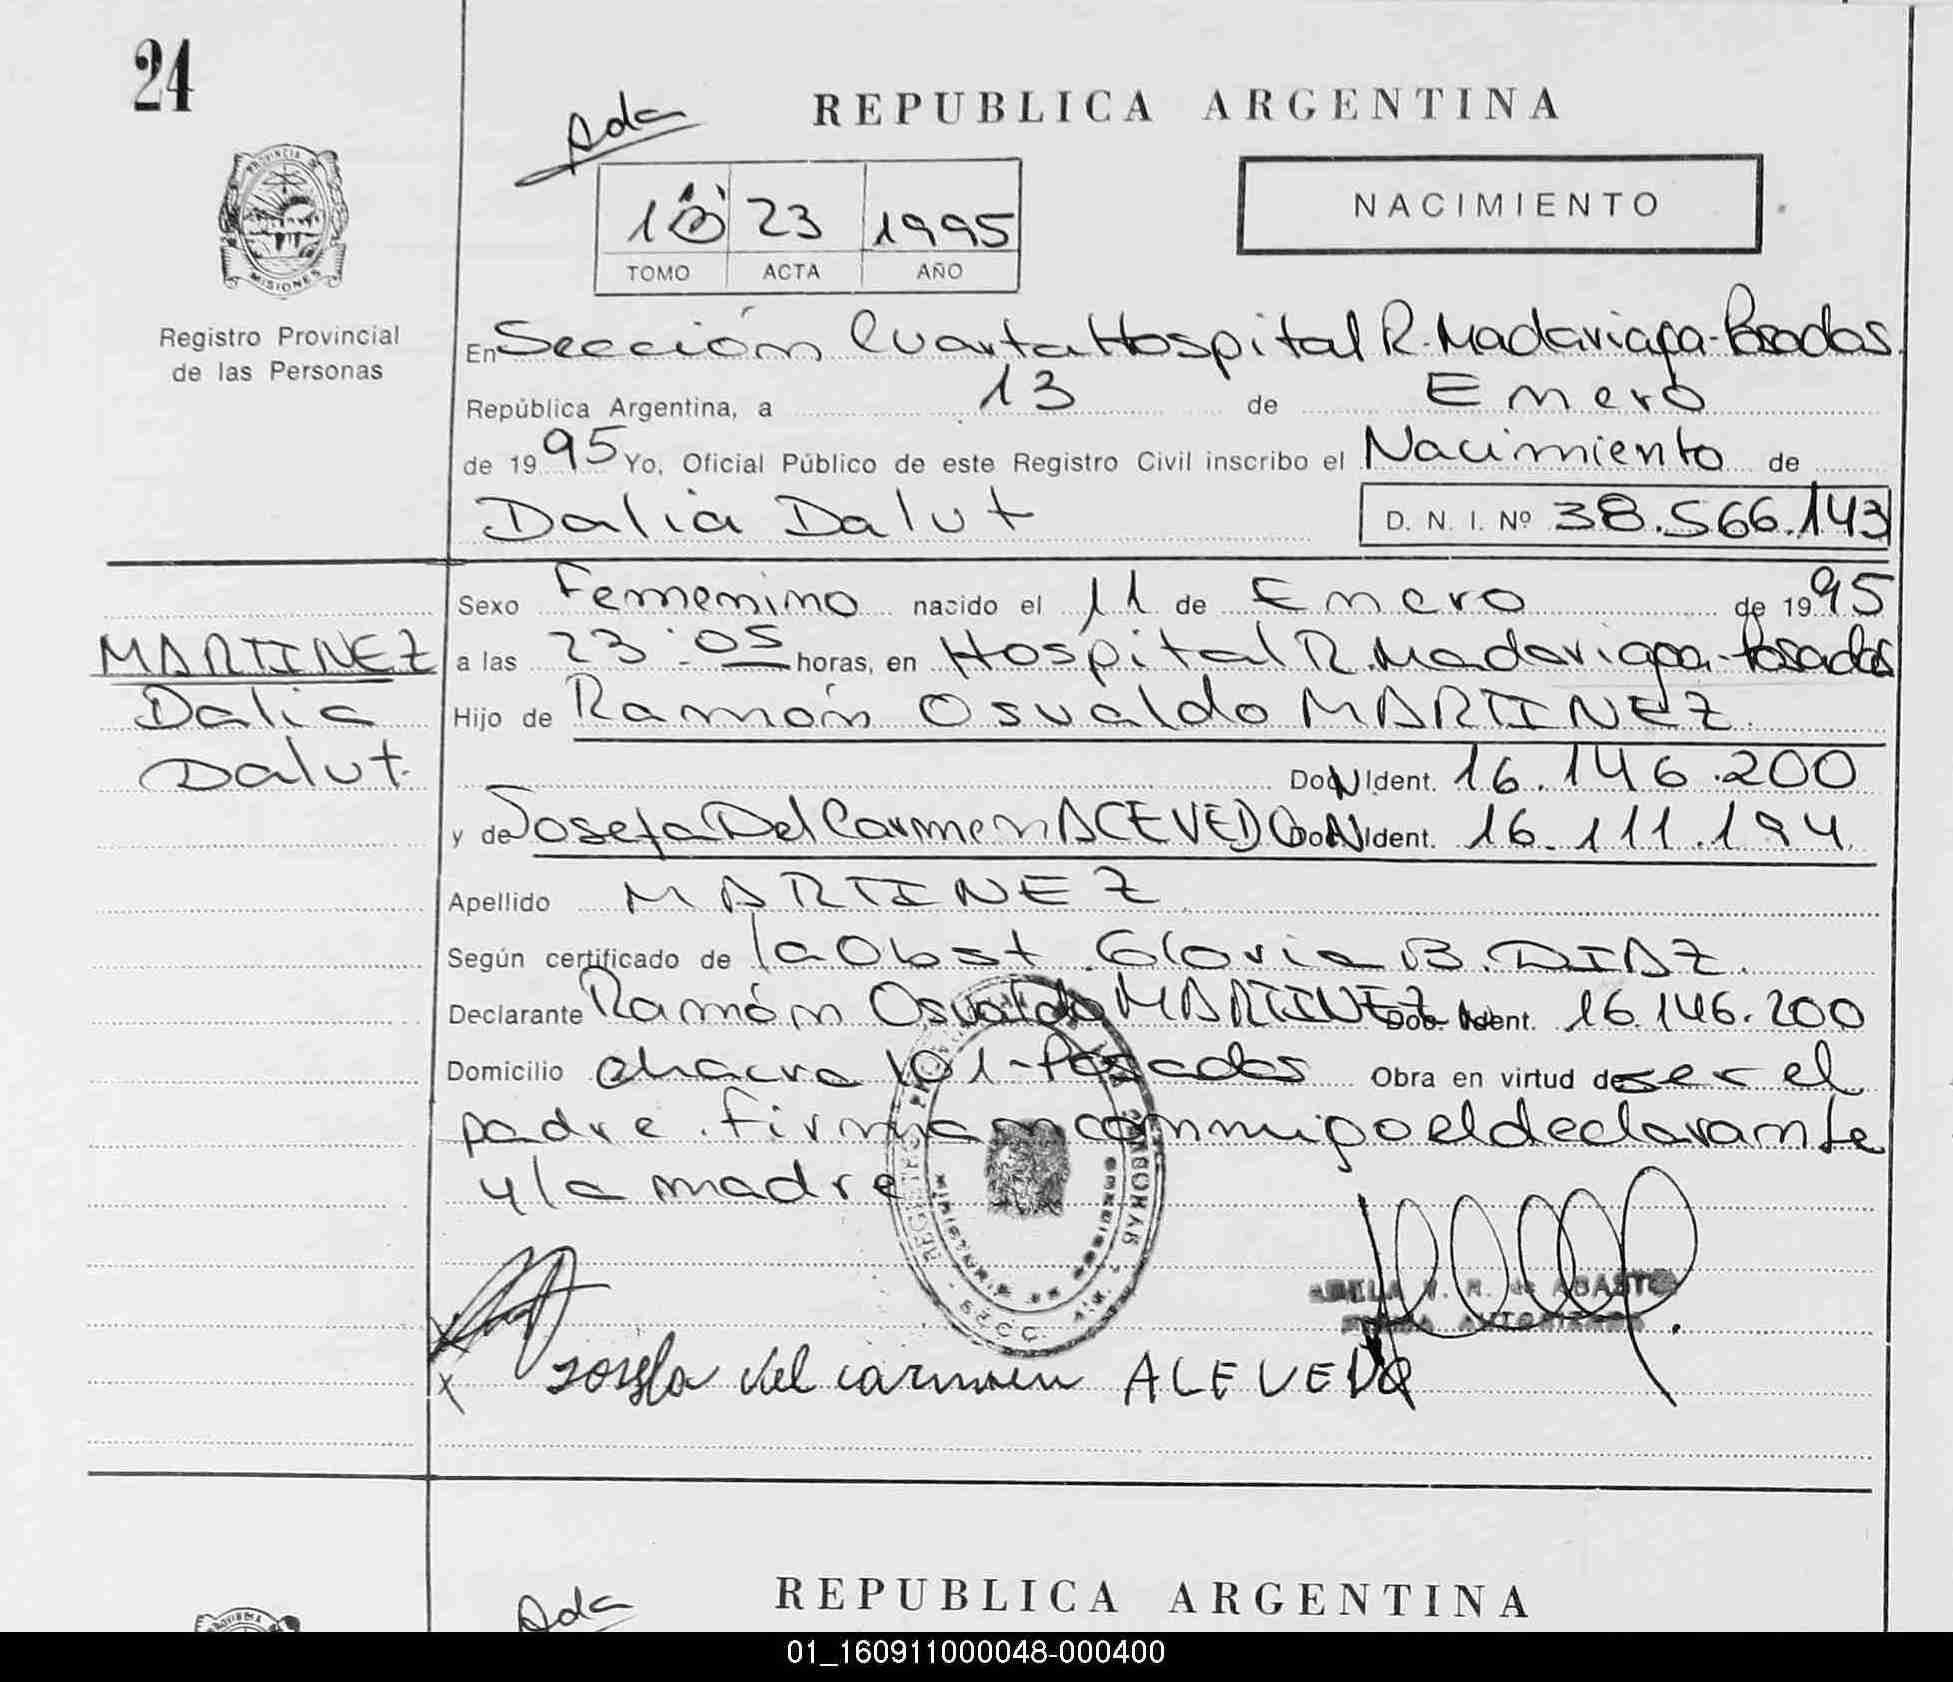 24
REPUBLICA ARGENTINA
Ada
NACIMIENTO
23 1995
TOMO ACTA AÑO
PROVINCIA DE
MISIONES
Registro Provincial
de las Personas
En Sección Cuarta Hospital R. Madariaga-Posadas.
República Argentina, a 13 de Enero
de 1995 Yo, Oficial Público de este Registro Civil inscribo el Nacimiento de
Dalia Dalut D. N. I. Nº 38.566.143
MARTINEZ
Dalia
Dalut.
Sexo Femenino nacido el 11 de Enero de 1995
a las 23:05 horas, en Hospital R. Madariaga-Posadas
Hijo de Ramón Osvaldo MARTINEZ.
Ident. 16.146.200
y de Josefa Del Carmen ACEVEDO Ident. 16.111.194.
Apellido MARTINEZ.
Según certificado de la Obst. Gloria B. DIAZ.
Declarante Ramón Osvaldo MARTINEZ Ident. 16.146.200
Domicilio chacra 101-Posadas Obra en virtud de ser el
padre. firman conmigo el declarante
y la madre
Josefa del carmen ACEVEDO
REPUBLICA ARGENTINA
Ada
01_160911000048-000400